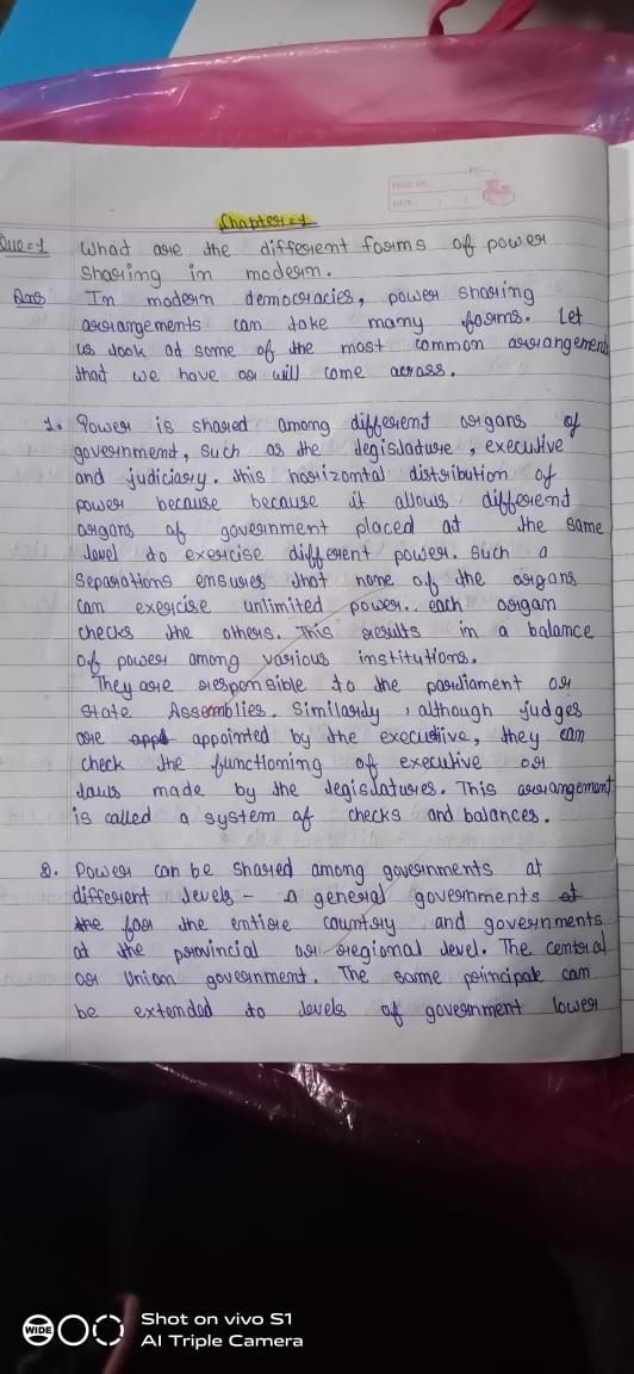 PAGE NO.
DATE:
Chapter = 1
Que = 1 What are the different forms of power
sharing in modern.
Ans In modern democracies, power sharing
arrangements can take many forms. Let
us look at some of the most common arrangements
that we have or will come across.
1. Power is shared among different organs of
government, such as the legislature, executive
and judiciary. this horizontal distribution of
power because because it allows different
organs of government placed at the same
level to exercise different power. Such a
separations ensures that none of the organs
can exercise unlimited power.. each organ
checks the others. This results in a balance
of power among various institutions.
They are responsible to the parliament or
state Assemblies. Similarly, although judges
are appl appointed by the executive, they can
check the functioning of executive or
laws made by the legislatures. This arrangement
is called a system of checks and balances.
2. Power can be shared among governments at
different levels - A general governments at
the for the entire country and governments
at the provincial or regional level. The central
or Union government. The same principale can
be extended to levels of government lower
WIDE
Shot on vivo S1
AI Triple Camera